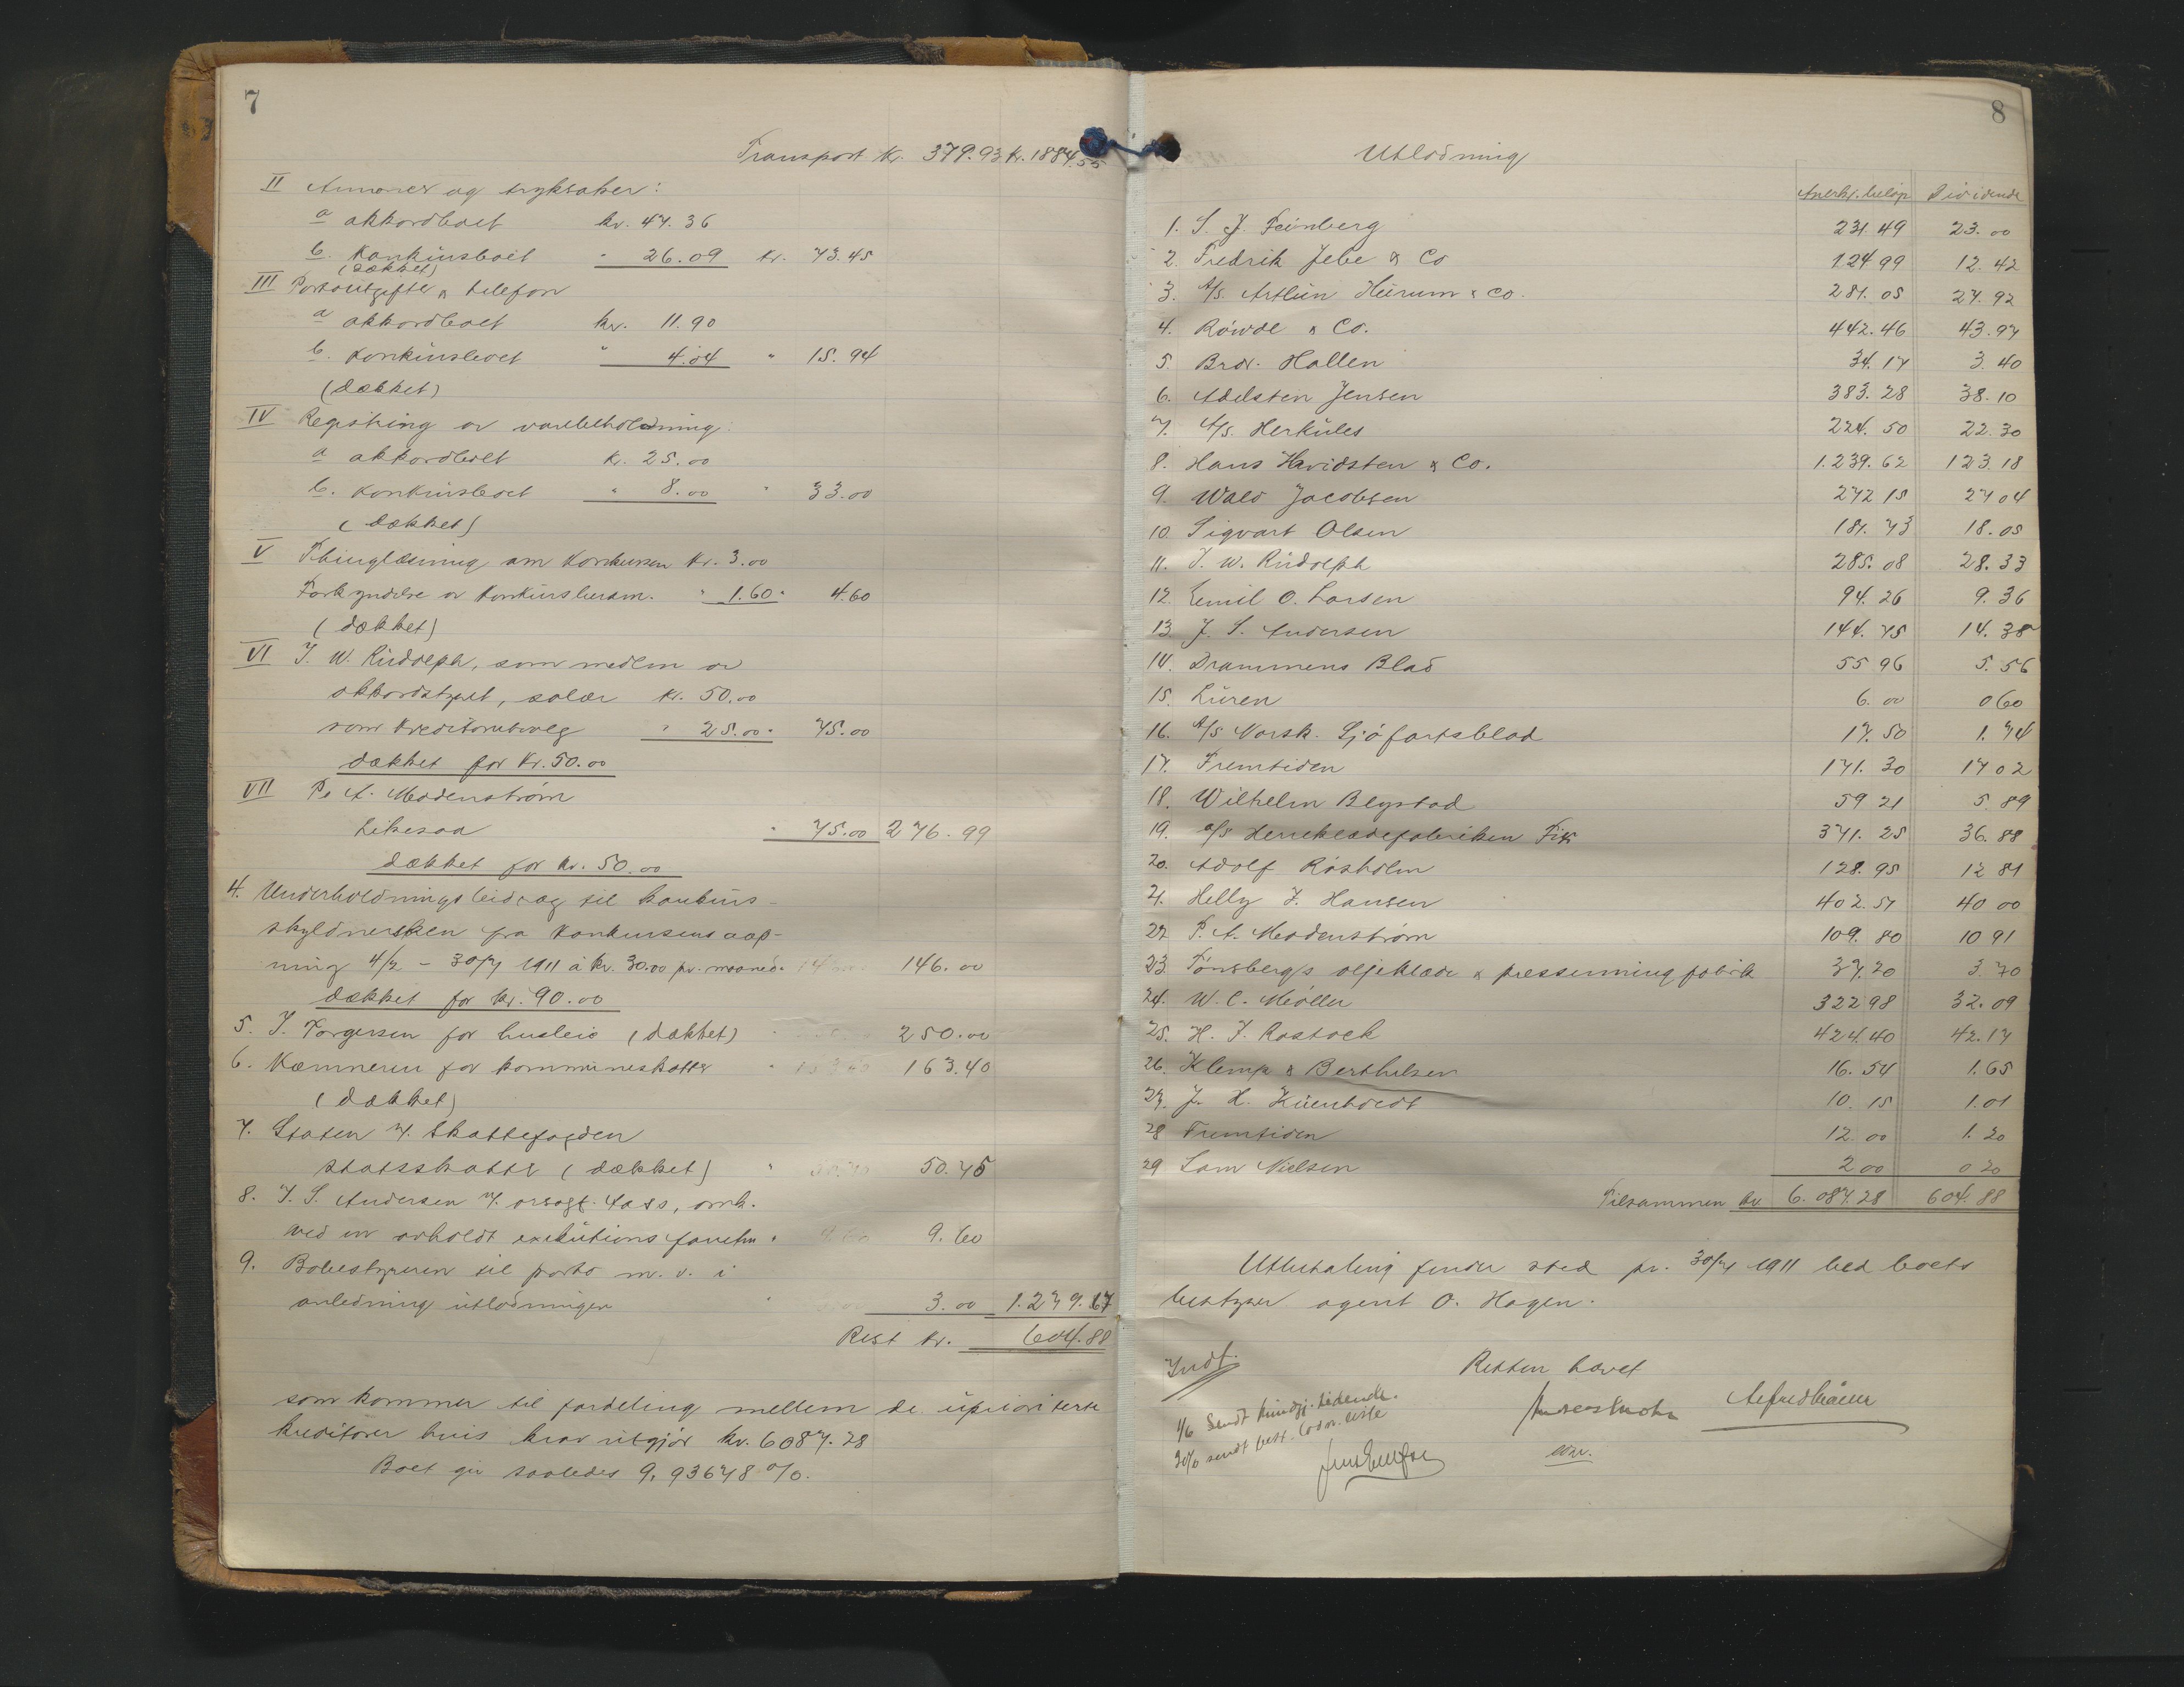 7
Transport kr. 379.93 kr. 1884.55
II Annoncer og tryksaker:
a akkordboet kr. 47.36
b. Konkursboet " 26.09 kr. 73.45
(dækket)
III Portoutgifter & telefon
a akkordboet kr. 11.90
b. Konkursboet " 4.04 " 15.94
(dækket)
IV Registring av varebeholdning:
a akkordboet kr. 25.00
b. Konkursboet " 8.00 " 33.00
(dækket)
V Thinglæsning om Konkursen kr. 3.00
Forkyndelse av Konkursberam. " 1.60 " 4.60
(dækket)
VI J. W. Rudolph, som medlem av
akkordstyret, salær kr. 50.00
som kreditorutvalg " 25.00 " 75.00
dækket for kr. 50.00
VII P. A. Modenström
Likesaa " 75.00 276.99
dækket for kr. 50.00
4. Underholdningsbidrag til konkurs-
skyldnersken fra Konkursens aap-
ning 4/2 - 30/7 1911 à kr. 30.00 pr. maaned. 146.00
dækket for kr. 90.00
5. J. Torgersen for husleie (dækket) 250.00
6. Kæmneren for kommuneskatter " 163.40
(dækket)
7. Staten v. Skattefogden
statsskatter (dækket) " 50.75
8. J. S. Andersen v. orsagf. Aass, omk.
ved en avholdt exekutionsforretn " 9.60 9.60
9. Bobestyreren til porto m. v. i
anledning utlodningen 3.00 1.279.67
Rest kr. 604.88
som kommer til fordeling mellem de uprioriterte
kreditorer hvis krav utgjör kr. 6087.28
Boet gir saaledes 9,93678 %.
8
Utlodning
Anerkj. beløp Dividende
1. S. J. Feinberg 231.49 23.00
2. Fredrik Jebe & Co 124 99 12.42
3. A/S. Arthur Hiirum & Co. 281.05 27.92
4. Röwde & Co. 442.46 43.97
5. Brdr. Hallen 34.17 3.40
6. Adelsten Jensen 383.28 38.10
7. A/S. Herkules 224.50 22.30
8. Hans Hvidsten & Co. 1.239.62 123.18
9. Wald Jacobsen 272 15 27 04
10. Sigvart Olsen 181.73 18.05
11. J. W. Rudolph 285.08 28.33
12. Emil O. Larsen 94.26 9.36
13 J. S. Andersen 144.75 14.38
14. Drammens Blad 55 96 5.56
15. Luren 6.00 0 60
16. A/S Norsk. Sjöfartsblad 17.50 1.74
17. Fremtiden 171.30 17 02
18. Wilhelm Blystad 59 21 5.89
19. a/s Herreklædefabriken Fix 371.25 36.88
20. Adolf Rösholm 128.95 12 81
21. Helly J. Hansen 402.57 40 00
22 P. A. Modenström 109.80 10 91
23. Tönsberg/s oljeklæde & pressenning fabrik 37.20 3.70
24. W. C. Möller 322 98 32.09
25. H. J. Rastock 424.40 42.17
26. Klemp & Berthelsen 16.54 1.65
27. J. H. Küenholdt 10.15 1.01
28 Fremtiden 12.00 1.20
29 Lam Nielsen 2 00 0 20
Tilsammen kr 6.087.28 604.88
Utbetaling finder sted pr. 30/7 1911 ved boets
bestyrer agent O. Hagen.
Retten hævet
Indf.
1/6 Sendt kundgj. tidende.